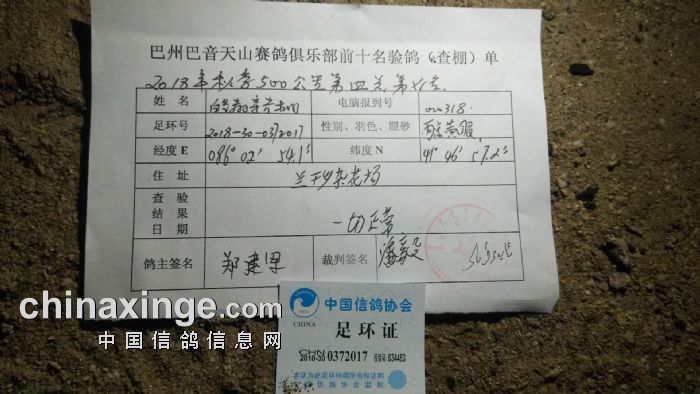 巴州巴音天山赛鸽俱乐部前十名验鸽（查棚）单
2018年秋季500公里第四关第 名
姓 名 电脑报到号 000318
足环号 2018-30-0372017 性别、羽色、眼砂 黄眼
经度E 086° 02' 54.1" 纬度N 41° 46' 57.2"
住 址
查 验
结 果 一切正常
日 期
鸽主签名 郑建 裁判签名 潘毅
chinaxinge.com
中国信鸽信息网
中国信鸽协会
CHINA
足环证
CHN
2018-30 0372017 834483
本证为此足环鸽所有权证明
中国信鸽协会监制